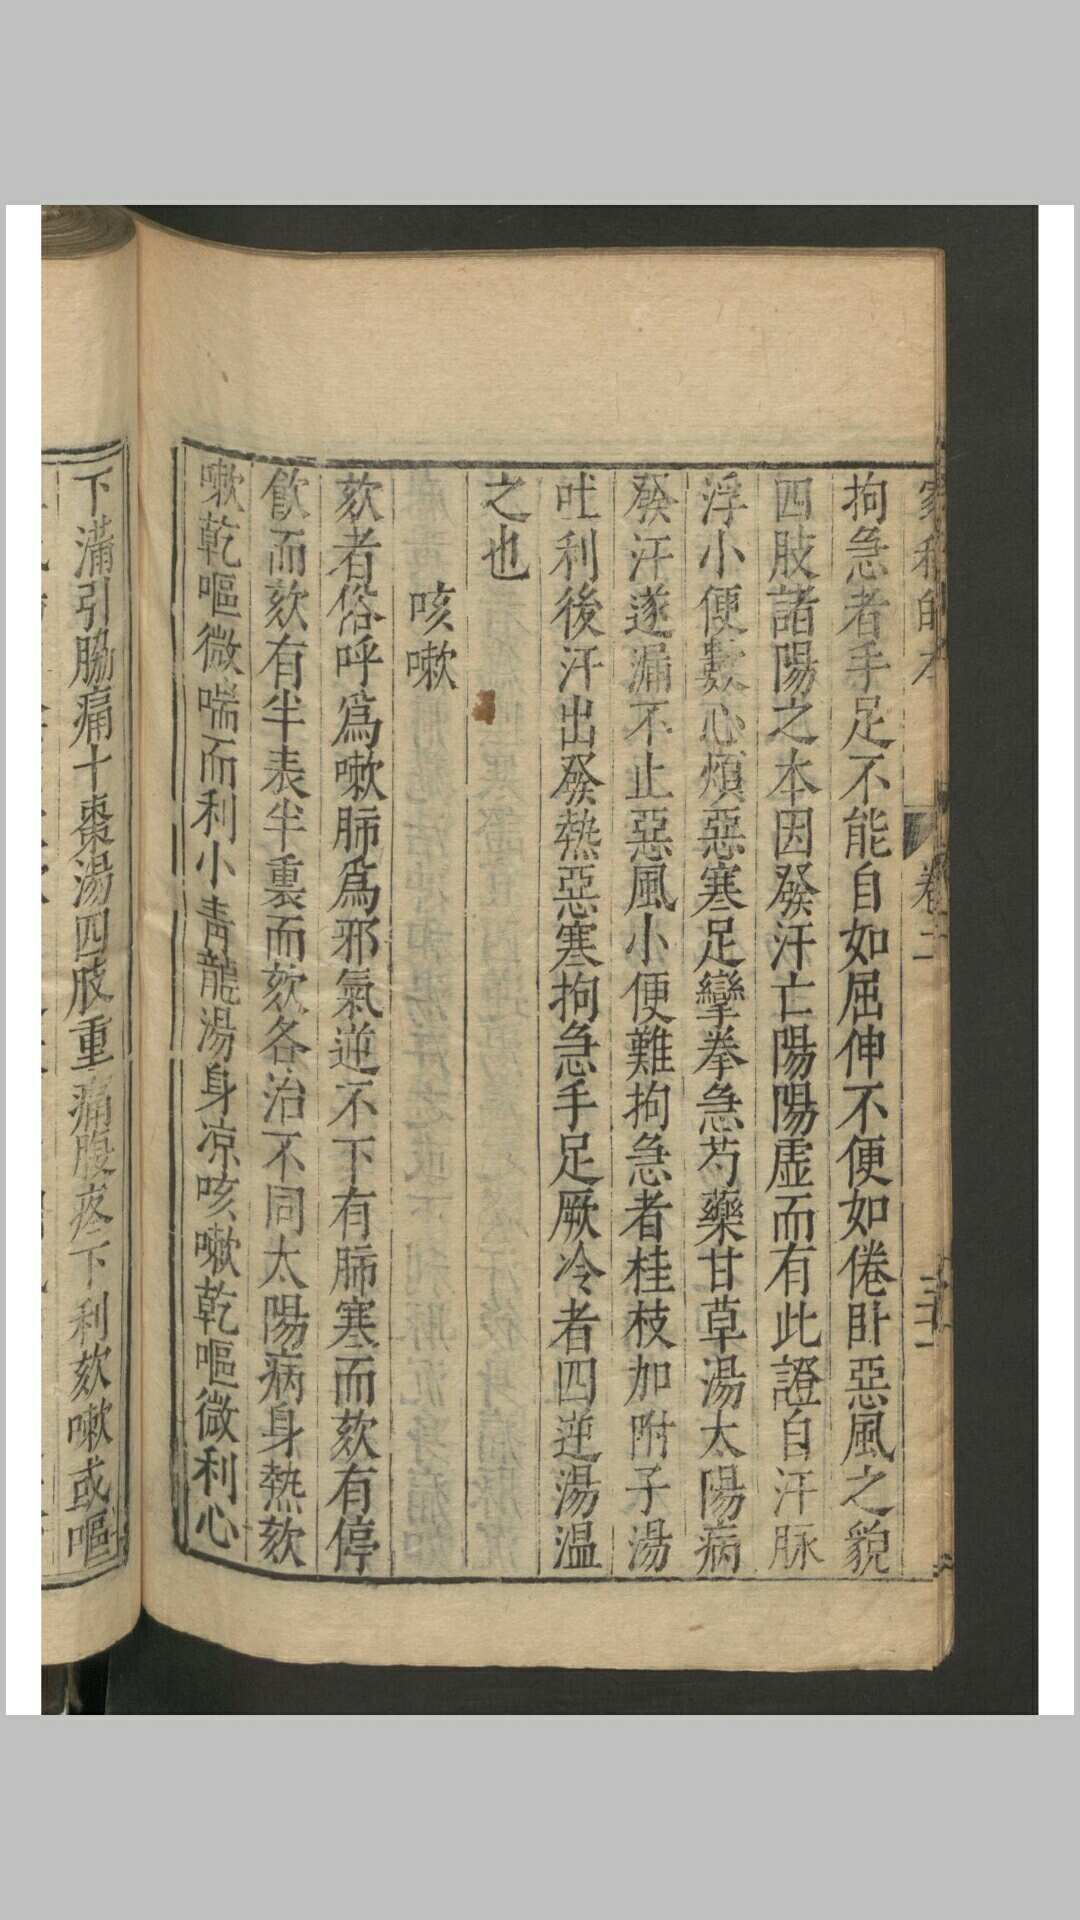 卷二
二十一
拘急者手足不能自如屈伸不便如倦卧惡風之貌
四肢諸陽之本因發汗亡陽陽虛而有此證自汗脉
浮小便數心煩惡寒足攣拳急芍藥甘草湯太陽病
發汗遂漏不止惡風小便難拘急者桂枝加附子湯
吐利後汗出發熱惡寒拘急手足厥冷者四逆湯溫
之也
咳嗽
欬者俗呼爲嗽肺爲邪氣逆不下有肺寒而欬有停
飲而欬有半表半裏而欬各治不同太陽病身熱欬
嗽乾嘔微喘而利小青龍湯身凉咳嗽乾嘔微利心
下滿引脇痛十棗湯四肢重痛腹疼下利欬嗽或嘔